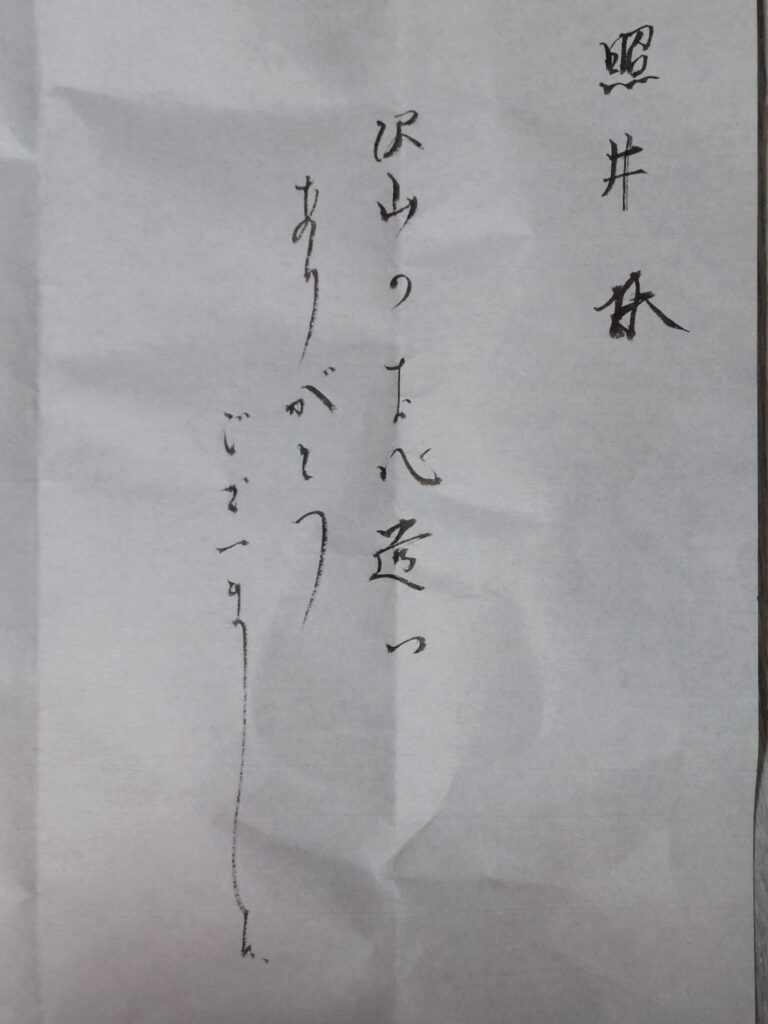 照井様
沢山のお心遣い
ありがとう
ございました